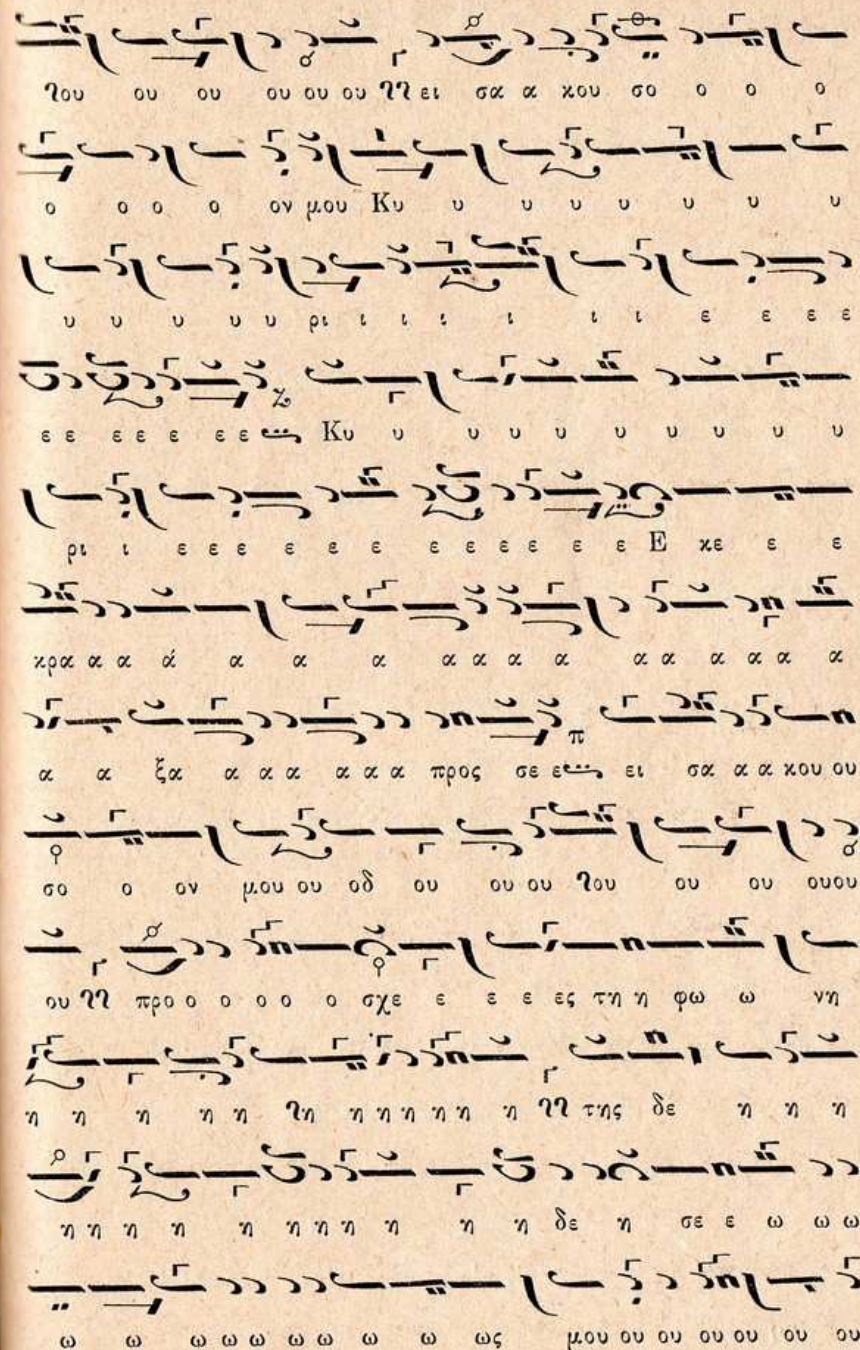 Ϟου ου ου ου ου ου ϞϞ ει σα α κου σο ο ο ο
ο ο ο ο ον μου Κυ υ υ υ υ υ υ υ
υ υ υ υ υ ρι ι ι ι ι ι ι ε ε ε ε
ε ε ε ε ε ε ε Κυ υ υ υ υ υ υ υ υ υ
ρι ι ε ε ε ε ε ε ε ε ε ε ε ε Ε κε ε ε
κρα α α ά α α α α α α α α α α α α α
α α ξα α α α α α α προς σε ε ει σα α α κου ου
σο ο ον μου ου οδ ου ου ου Ϟου ου ου ουου
ου ϞϞ προ ο ο ο ο ο σχε ε ε ε ες τη η φω ω νη
η η η η η Ϟη η η η η η η ϞϞ της δε η η η
η η η η η η η η η η η δε η σε ε ω ω ω
ω ω ω ω ω ω ω ω ω ως μου ου ου ου ου ου ου